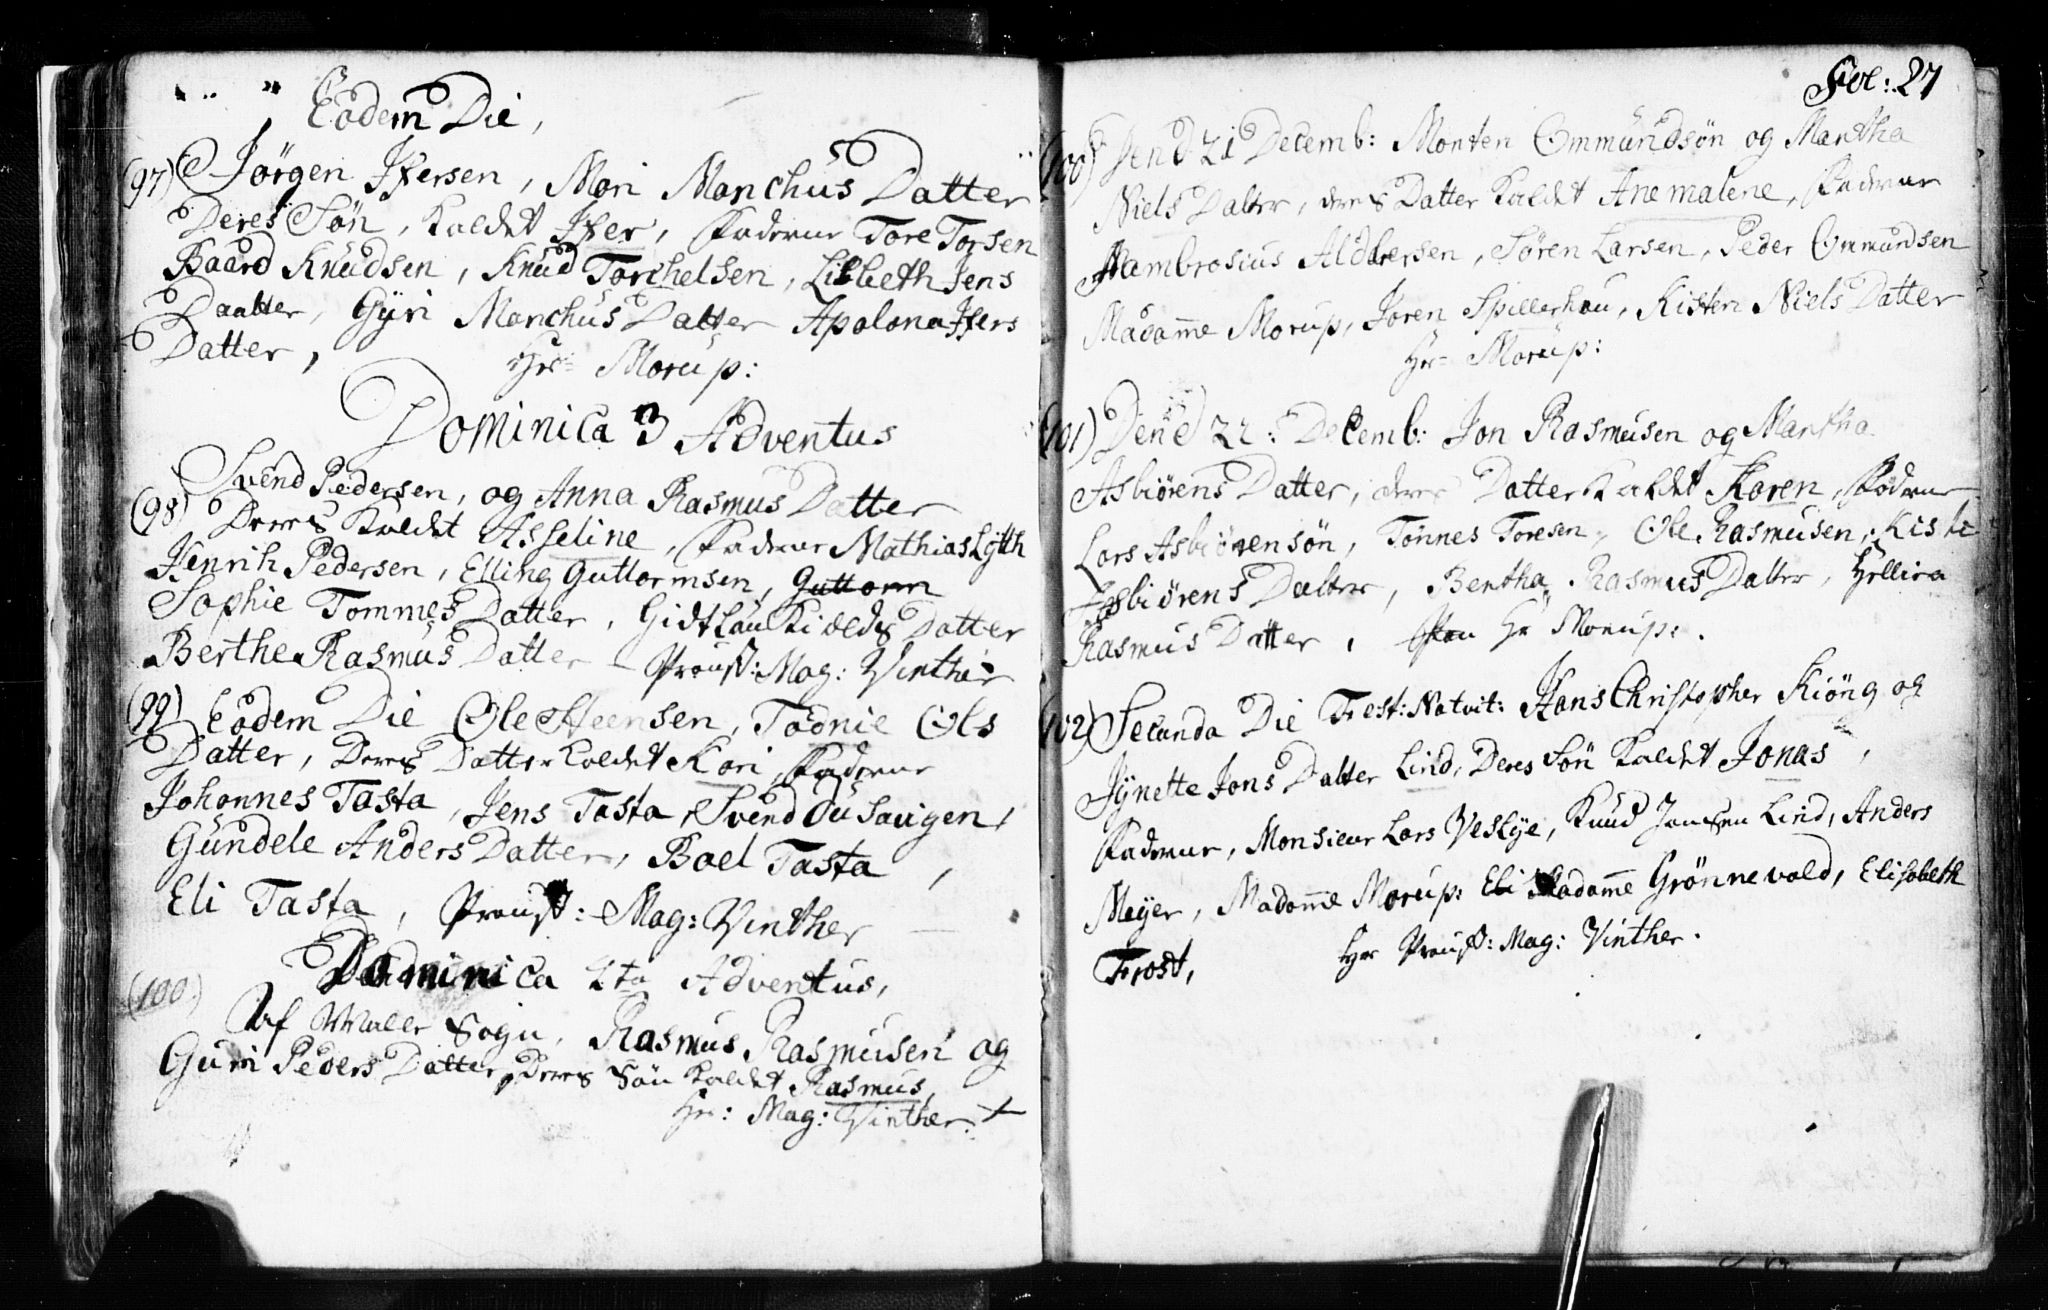 Eodem Die,
(97) Jörgen Ifersen, Mari Marchus Datter
Deres Sön, Kaldet Ifer, Faderne Tore Torsen
Baard Knudsen, Knud Torchelsen, Lisbeth Jens
Daatter, Gÿri Marchus Datter Apolona Ifers
Datter, Hr= Morup:
Dominica 3 Adventus
Svend Pedersen, og Anna Rasmus Datter
(98) Deres Kaldet Asseline, Faderne Mathias Lÿtth
Henrih Pedersen, Elling Guttormsen, Guttorm
Sophie Tommes Datter, Gidtlau Kields Datter
Berthe Rasmus Datter – Proust: Mag: Vinther
(99) Eodem Die Ole Steensen, Todnie Ols
Datter, Deres Datter Kaldet Kari, Faderne
Johonnes Tasta, Jens Tasta, Svend Dusavigen,
Gundele Anders Datter, Boel Tasta,
Eli Tasta, Proust: Mag: Vinther
Dominica 4ta Adventus,
(100) Af Malle Sogn, Rasmus Rasmusen og
Guri Peders Datter, Deres Sön Kaldet Rasmus,
Hr: Mag: Vinther. +
Fol: 27
(100) Den d 21 Decemb: Morten Ommundsön og Martha
Niels Datter, deres Datter Kaldet Ane malene, Faderne
Hambrosius Aldbersen, Sören Larsen, Peder Ommundsen
Madam̄e Morup, Joren Spillerhau, Kisten Niels Datter
Hr= Morup:
(101) Den d 22: Decemb: Jon Rasmusen og Martha
Asbiörens Datter, deres Datter Kaldet Karen, Faderne
Lars Asbiörensön, Tönnes Toresen, Ole Rasmusen, Kisti
Asbiörens Datter, Bertha Rasmus Datter, Hellica
Rasmus Datter, Hr Morup:.
(102) Secunda Die Fest: Nativit: Hans Christopher Kiöng og
Jÿnette Jons Datter Lind, Deres Sön Kaldet Jonas,
Faderne, Monsieur Lars Veslÿe, Knud Jansen Lind, Anders
Meÿer, Madam̄e Morup: Eli Madam̄e Grönnevold, Elisabeth
Frost, Hr Proust: Mag: Vinther.